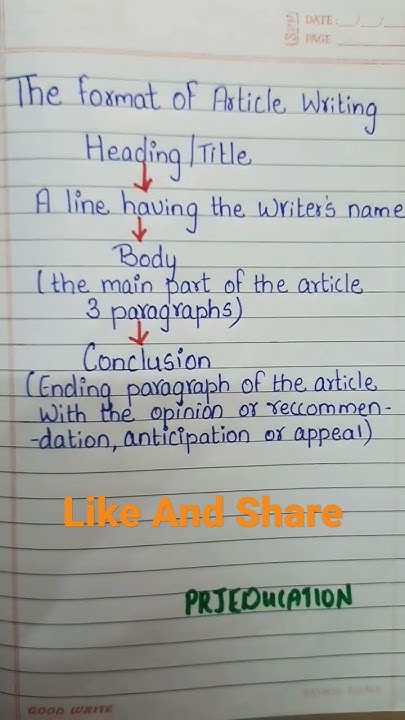 SPP
DATE: __/__/__
PAGE
The format of Article Writing
Heading/Title
A line having the Writer's name
Body
(the main part of the article
3 paragraphs)
Conclusion
(Ending paragraph of the article
With the opinion or reccommen-
-dation, anticipation or appeal)
Like And Share
PRJEDUCATION
GOOD WRITE